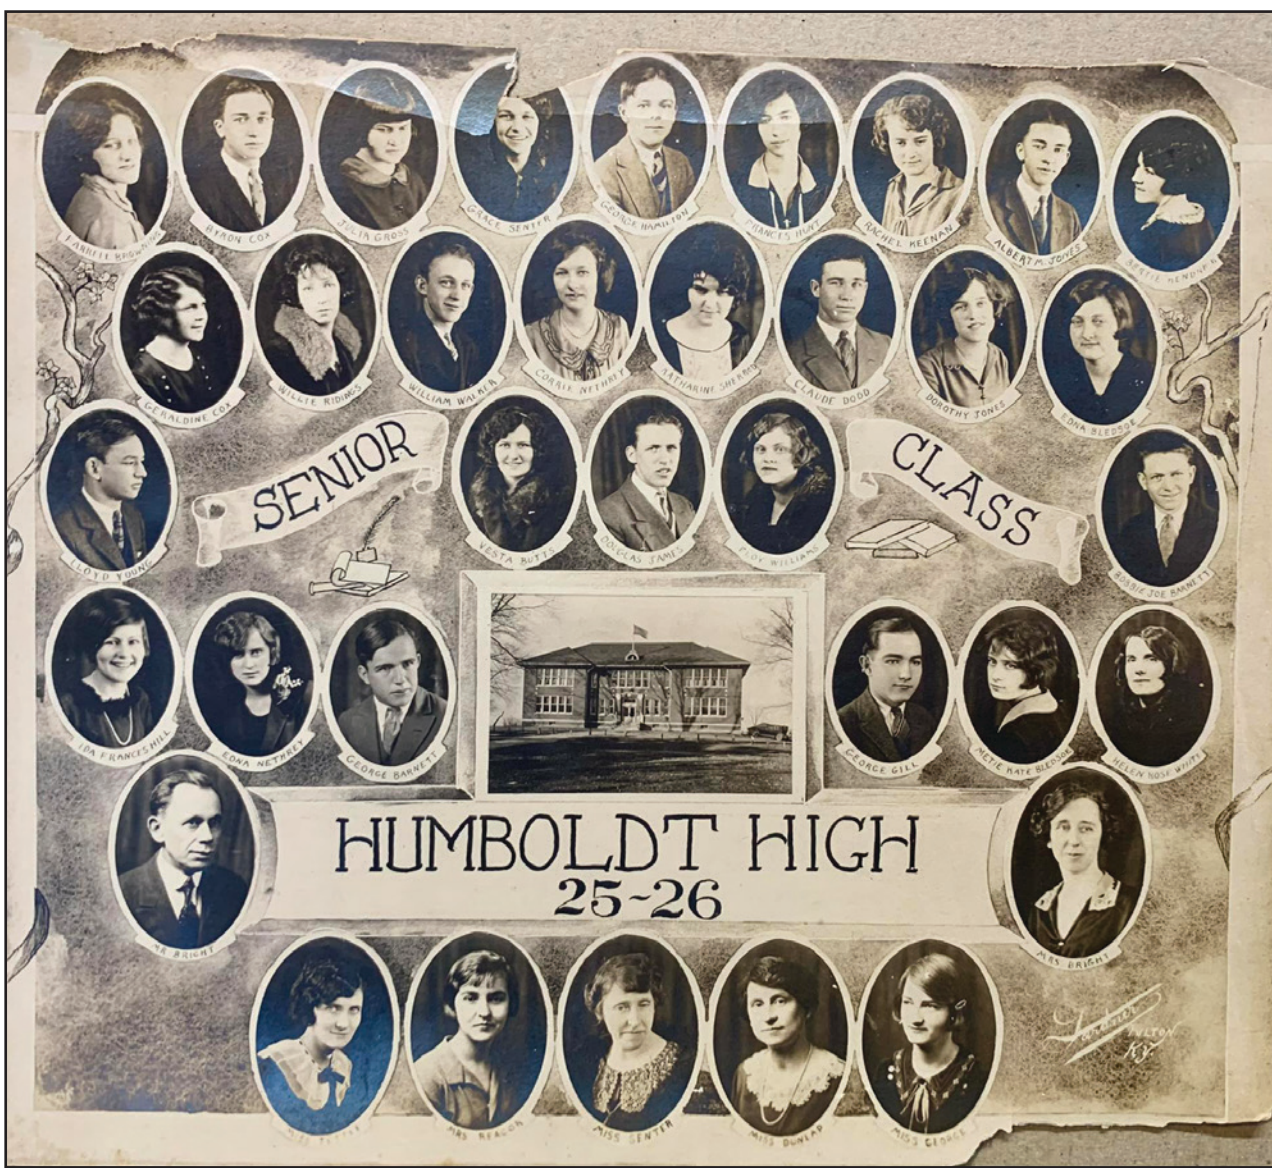 FARRELL BROWNING
BYRON COX
JULIA GROSS
GRACE SENTER
GEORGE HAMILTON
FRANCES HUNT
RACHEL KEENAN
ALBERT M. JONES
GERALDINE COX
WILLIE RIDINGS
WILLIAM WALKER
CORRIE NETHREY
KATHARINE
CLAUDE DODD
DOROTHY JONES
EDNA BLEDSOE
LLOYD YOUNG
SENIOR
VESTA BUTTS
DOUGLAS JAMES
WILLIAMS
CLASS
BOBBIE JOE BARNETT
IDA FRANCES HILL
EDNA NETHREY
GEORGE BARNETT
GEORGE GILL
METIE KATE BLEDSOE
HELEN ROSE WHITE
MR BRIGHT
HUMBOLDT HIGH
25-26
MRS BRIGHT
MISS
MRS REAGOR
MISS SENTER
MISS DUNLAP
MISS GEORGE
Gardner
FULTON
KY.